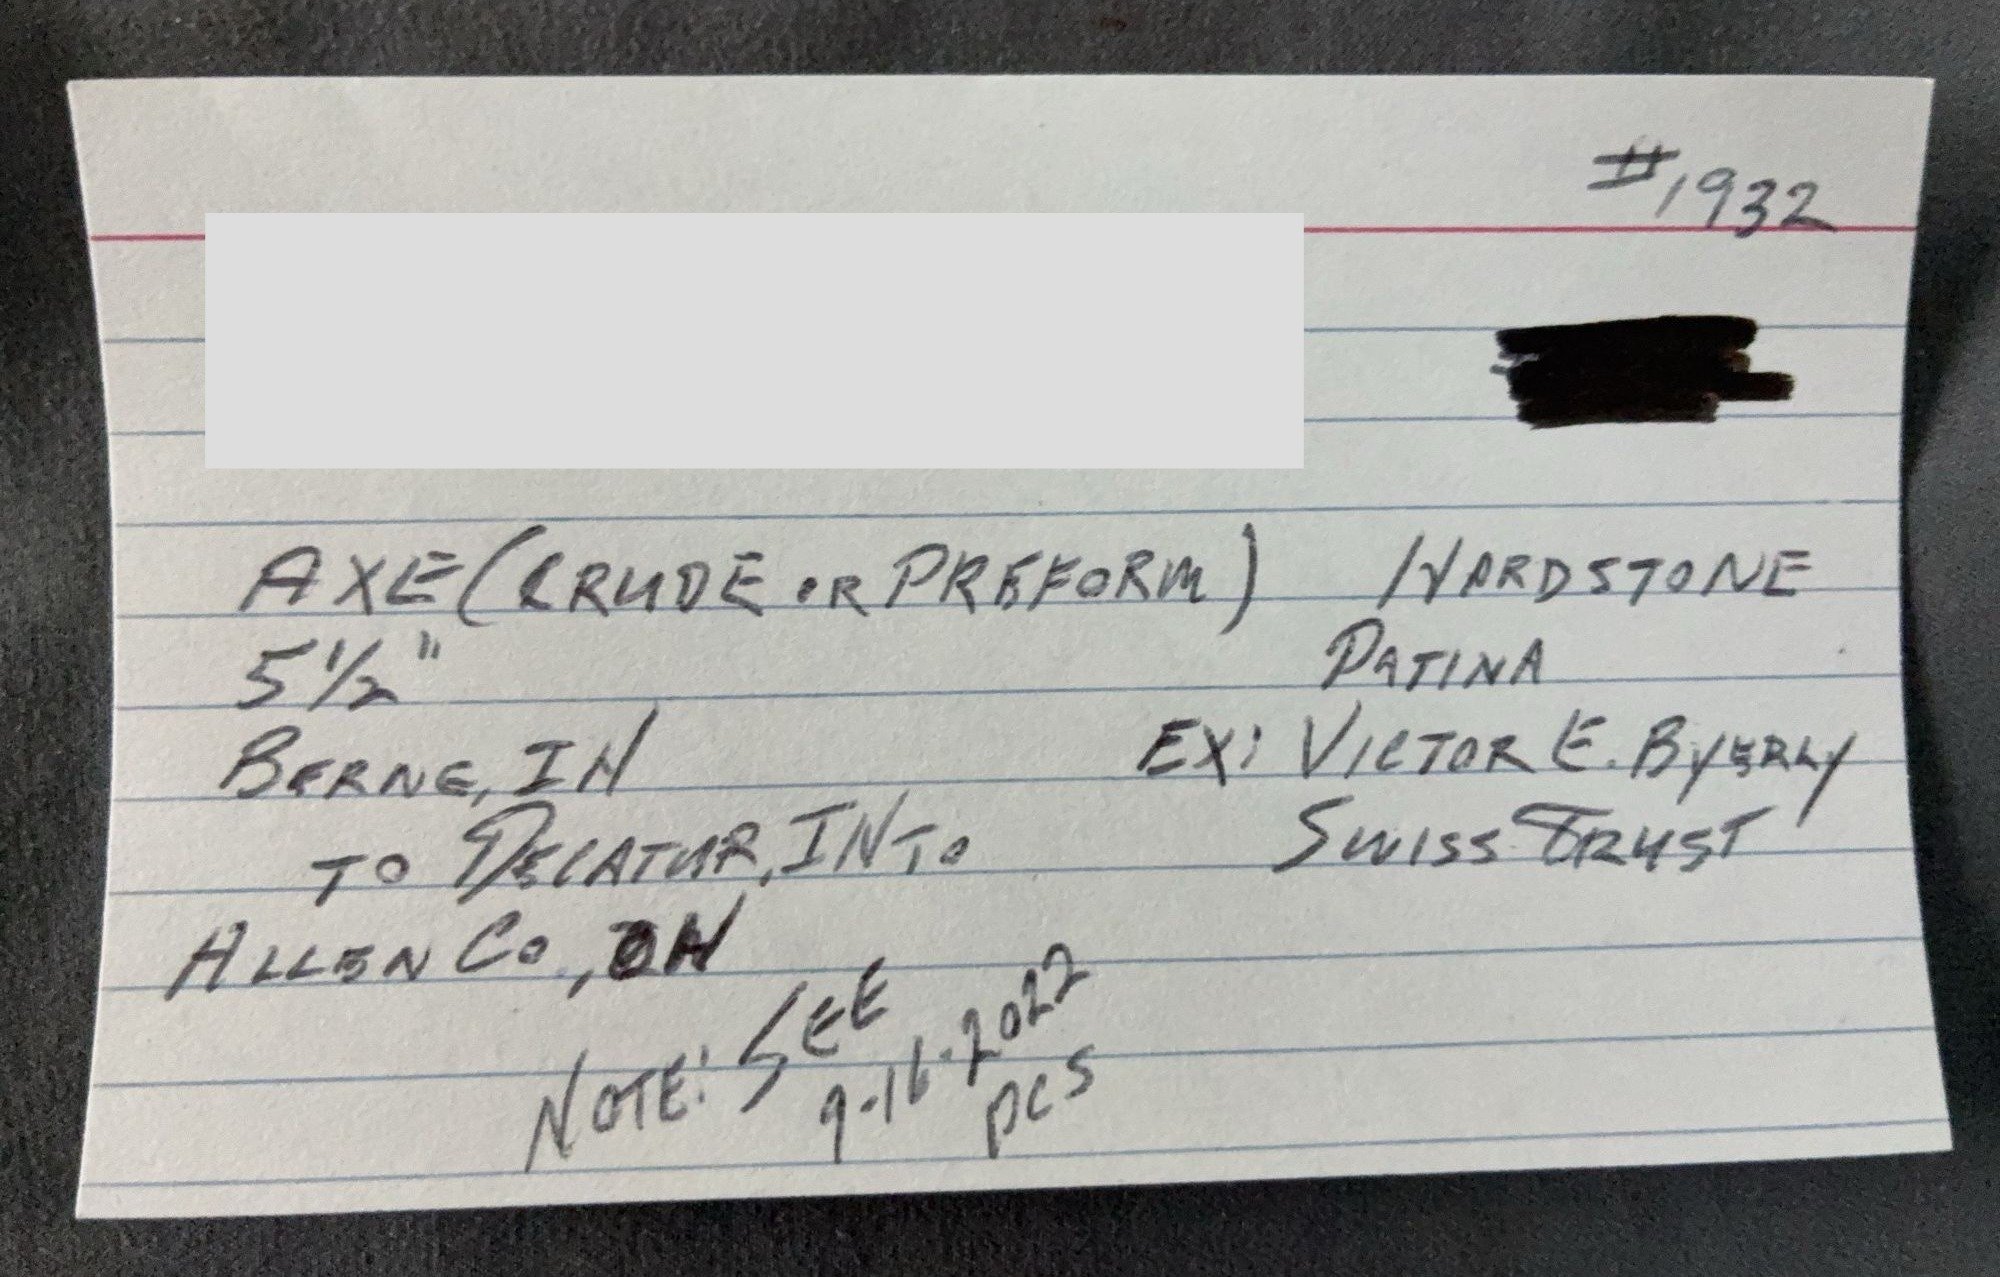 #1932
AXE (CRUDE OR PREFORM) HARDSTONE
5 1/2" PATINA
BERNE, IN EX: VICTOR E. BYERLY
TO DECATUR, IN TO SWISS TRUST
ALLEN CO., OH
NOTE: SEE
9-16-2022
PCS